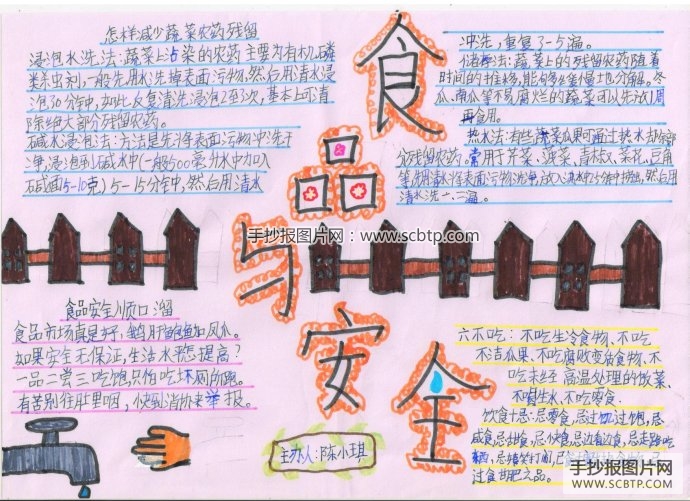 怎样减少蔬菜农药残留
浸泡水洗法:蔬菜上沾染的农药主要为有机磷
类杀虫剂,一般先用水洗掉表面污物,然后用清水浸
泡10分钟,如此反复清洗浸泡2至3次,基本上可清
除绝大部分残留农药。
碱水浸泡法:方法是先将表面污物冲洗干
净,浸泡到碱水中(一般500毫升水中加入
碱面5-10克)5-15分钟,然后用清水
冲洗,重复了-5遍。
储存法:蔬菜上的残留农药随着
时间的推移,能够缓慢地分解。冬
瓜、南瓜等不易腐烂的蔬菜可以先放1周
再食用。
热水法:有些蔬菜瓜果可通过热水去除部
分残留农药。常用于芹菜、菠菜、青椒、菜花、豆角
等。先用清水将表面污物洗净,放入沸水中2-5分钟捞出,然后用
清水洗一、二遍。
食品与安全
手抄报图片网:www.scbtp.com
食品安全顺口溜
食品市场真是好,鹅肝鲍鱼加凤爪。
如果安全无保证,生活水平怎提高?
一品二尝三吃饱,只怕吃坏厕所跑。
有苦别往肚里咽,快到消协来举报。
主办人:陈小琪
六不吃:不吃生冷食物、不吃
不洁瓜果、不吃腐败变质食物、不
吃未经高温处理的饭菜、
不喝生水、不吃零食.
饮食十忌:忌零食,忌过饥过饱,忌
咸食甜食,忌快食,忌边看边食,忌走路吃
忌嬉笑打闹,
过食肥
手抄报图片网
WWW.SCBTP.COM